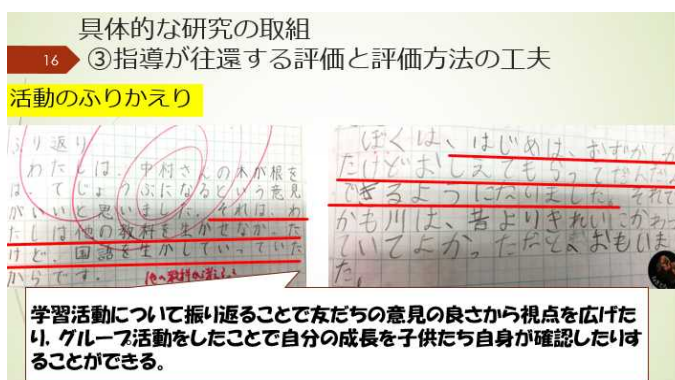 具体的な研究の取組
16
③指導が往還する評価と評価方法の工夫
活動のふりかえり
ふり返り
わたしは、中村さんの木が根を
は、てじょうぶになるという意見
がいいと思いました。それは、わ
たしは他の教科を生かせなか、た
けど、国語を生かしていっていた
からです。
ぼくは、はじめは、むずかし
たけどおしえてもらってだんだん
できるようになりました。それで
かも川は、昔よりきれいにかわっ
ていてよかっただと、おもいまし
た。
学習活動について振り返ることで友だちの意見の良さから視点を広げた
り、グループ活動をしたことで自分の成長を子供たち自身が確認したりす
ることができる。